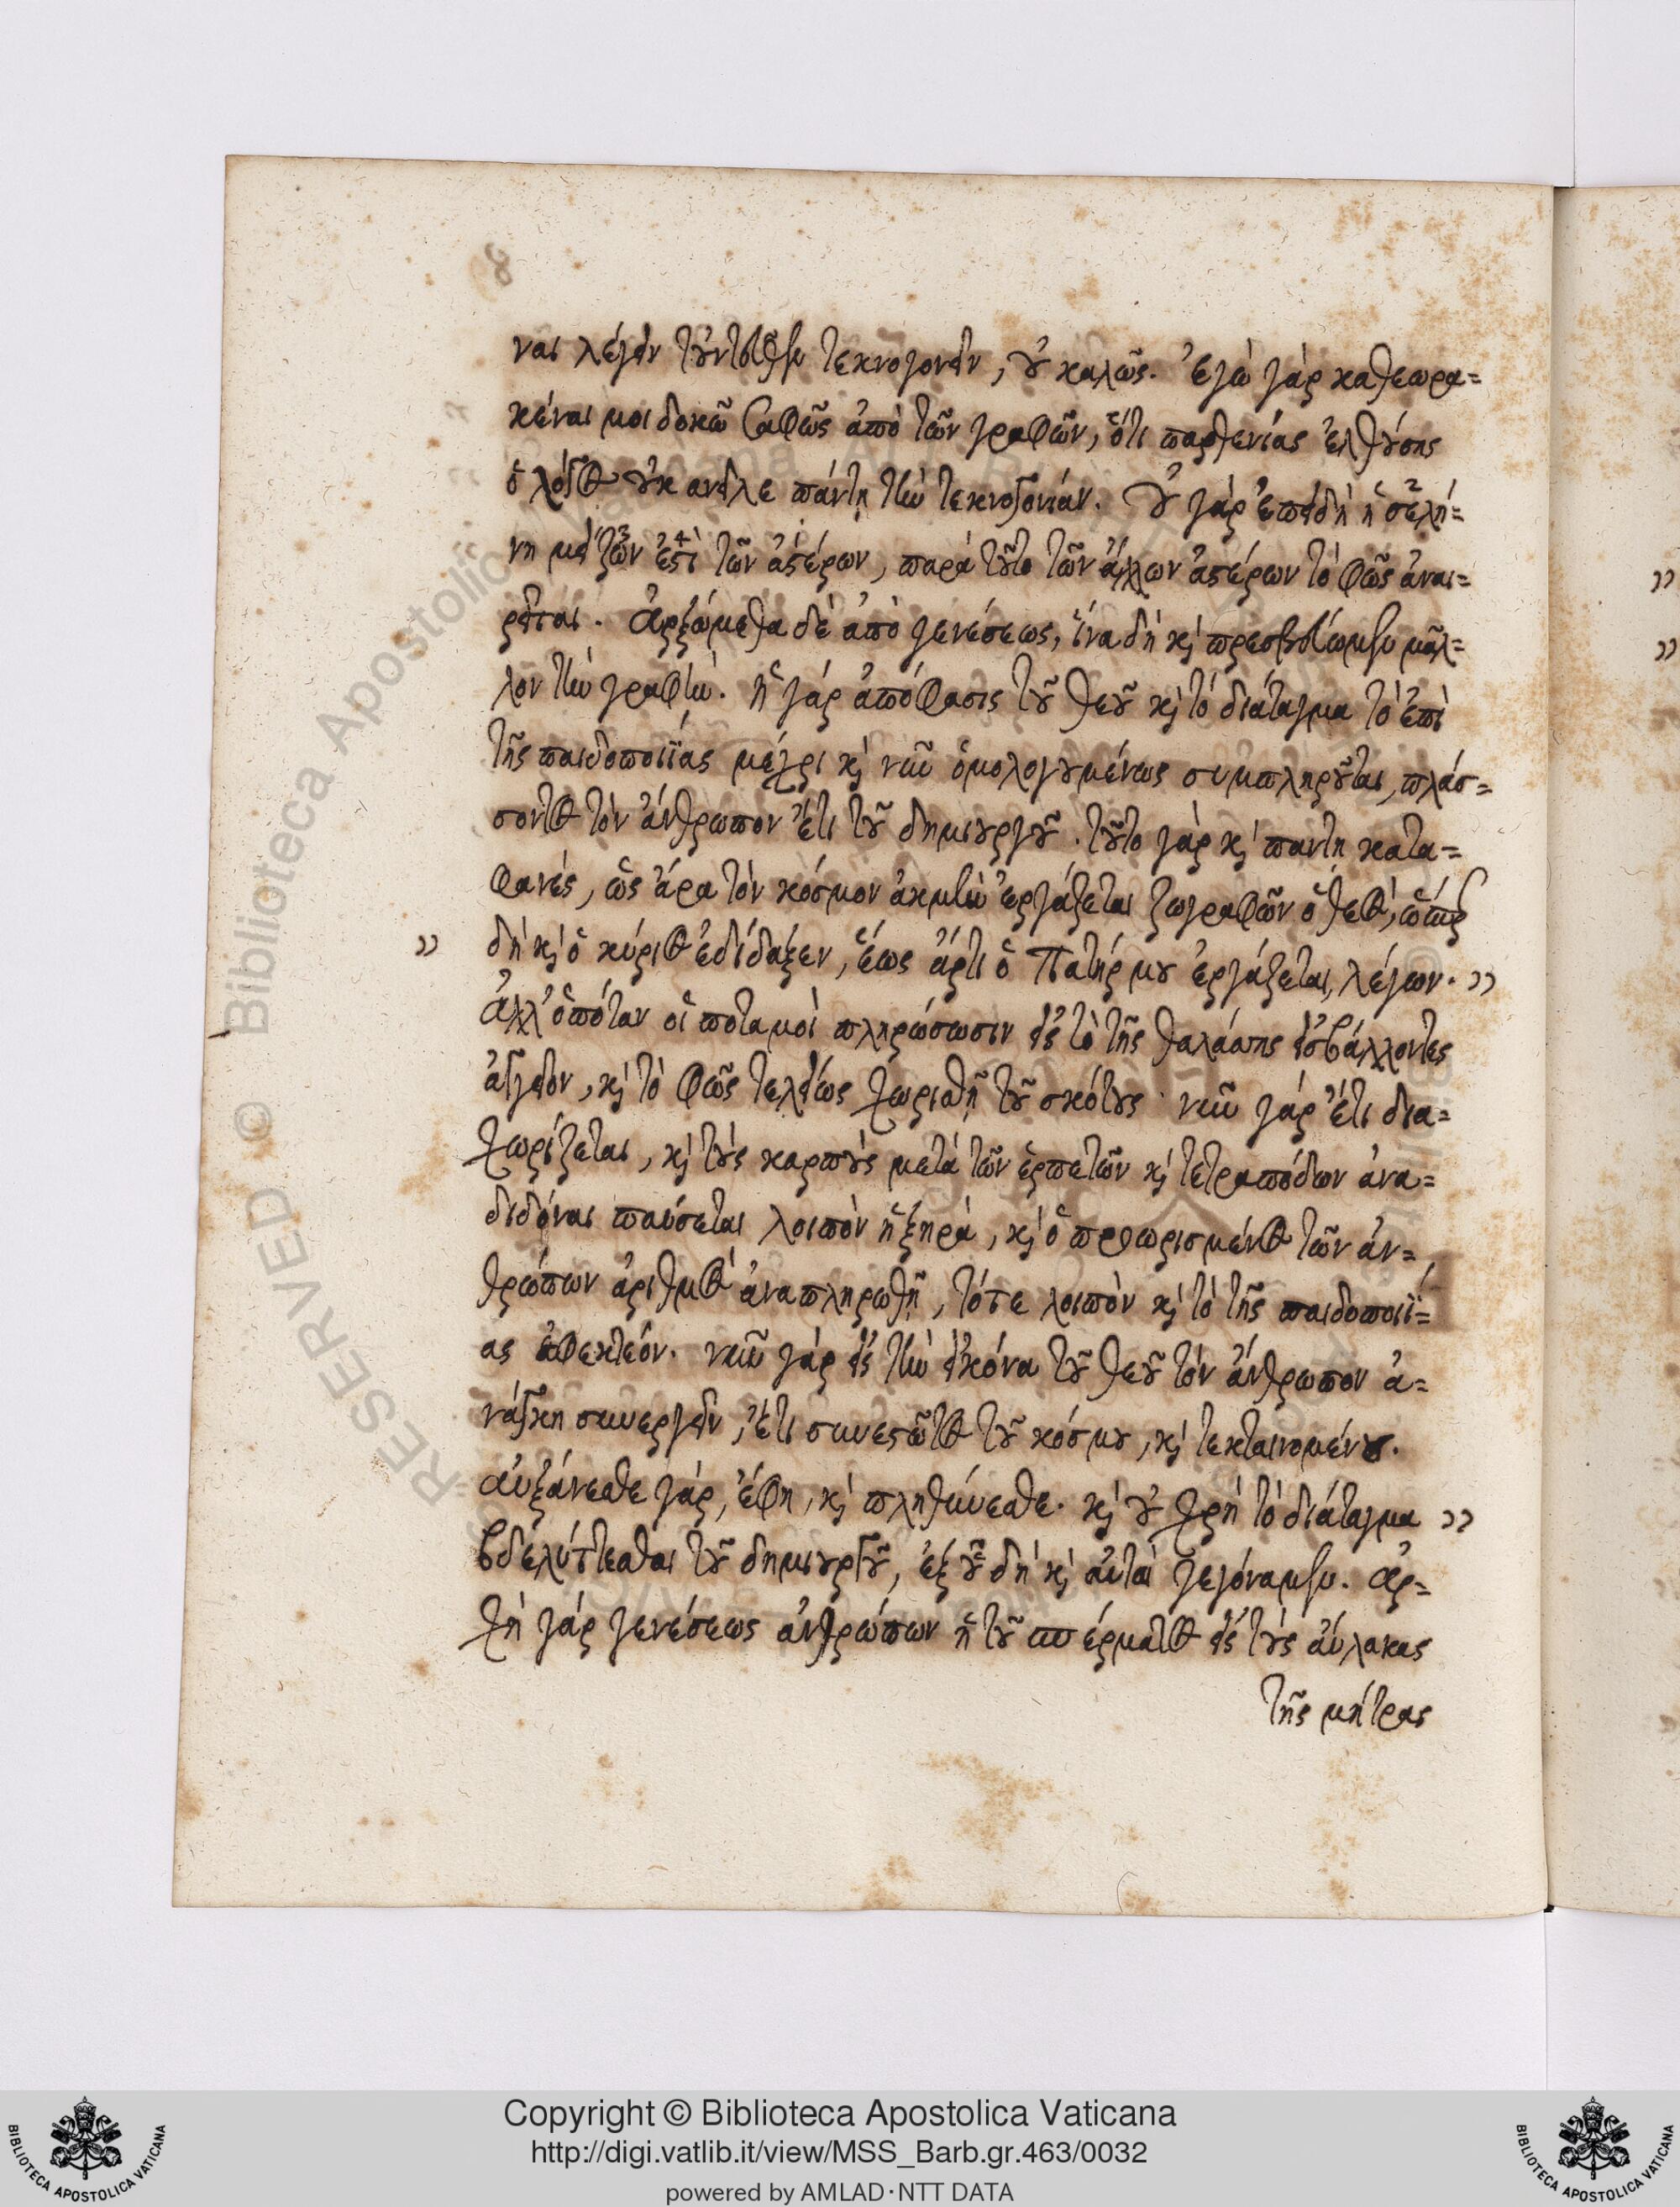 8
ναι λέγειν τοὐντεῦθεν τεκνογονεῖν, οὐ καλῶς. ἐγὼ γὰρ καθεωρα=
κέναι μοι δοκῶ σαφῶς ἀπὸ τῶν γραφῶν, ὅτι παρθενίας ἐλθούσης
ὁ λόγος οὐκ ανεῖλε πάντη τὴν τεκνογονίαν. οὐ γὰρ ἐπειδὴ ἡ σελή=
νη μείζων ἐστὶ τῶν ἀστέρων, παρὰ τοῦτο τῶν ἄλλων ἀστέρων τὸ φῶς ἀναι=
ρεῖται. ἀρξώμεθα δὲ ἀπὸ γενέσεως, ἵνα δὴ καὶ πρεσβεύωμεν μᾶλ=
λον τὴν γραφὴν. ἡ γὰρ ἀπόφασις τοῦ θεοῦ καὶ τὸ διάταγμα τὸ ἐπὶ
τῆς παιδοποιΐας μέχρι καὶ νῦν ὁμολογουμένως συμπληροῦται, πλάσ=
σοντος τὸν ἄνθρωπον ἔτι τοῦ δημιουργοῦ. τοῦτο γὰρ καὶ παντη κατα=
φανές, ὡς ἄρα τὸν κόσμον ἀκμὴν ἐργάζεται ζωγραφῶν ὁ θεός, ὥσπερ
" δὴ καὶ ὁ κύριος ἐδίδαξεν, ἕως ἄρτι ὁ Πατήρ μου ἐργάζεται, λέγων. "
ἀλλ' ὁπόταν οἱ ποταμοὶ πληρώσωσιν εἰς τὸ τῆς θαλάσσης εἰσβάλλοντες
ἀγγεῖον, καὶ τὸ φῶς τελείως χωρισθῇ τοῦ σκότους νῦν γὰρ ἔτι δια=
χωρίζεται, καὶ τοὺς καρποὺς μετὰ τῶν ἑρπετῶν καὶ τετραπόδων ἀνα=
διδόναι παύσεται λοιπὸν ἡ ξηρὰ, καὶ ὁ προωρισμένος τῶν ἀν=
θρώπων ἀριθμὸς ἀναπληρωθῇ, τότε λοιπὸν καὶ τὸ τῆς παιδοποιΐ=
ας ἀφεκτεόν. νῦν γὰρ εἰς τὴν εἰκόνα τοῦ θεοῦ τὸν ἄνθρωπον ἀ=
νάγκη συνεργεῖν, ἔτι συνεστῶτος τοῦ κόσμου, καὶ τεκταινομένου.
αὐξάνεσθε γὰρ, ἔφη, καὶ πληθύνεσθε. καὶ οὐ χρὴ τὸ διάταγμα "
βδελύττεσθαι τοῦ δημιουργοῦ, ἐξ οὗ δὴ καὶ αὐτοὶ γεγόναμεν. ἀρ=
χὴ γὰρ γενέσεως ἀνθρώπων ἡ τοῦ σπέρματος εἰς τοὺς αὔλακας
τῆς μήτρας
Copyright © Biblioteca Apostolica Vaticana
http://digi.vatlib.it/view/MSS_Barb.gr.463/0032
powered by AMLAD·NTT DATA